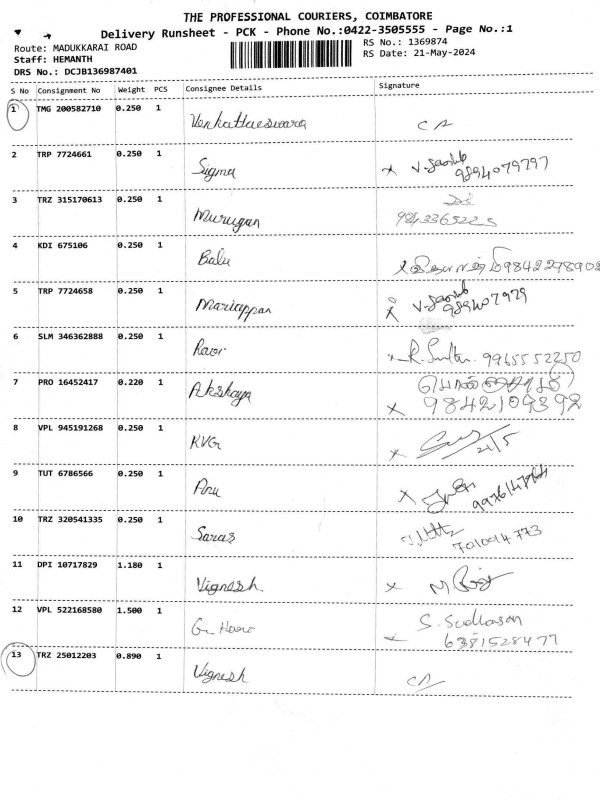 THE PROFESSIONAL COURIERS, COIMBATORE
Delivery Runsheet - PCK - Phone No.:0422-3505555 - Page No.:1
Route: MADUKKARAI ROAD
RS No.: 1369874
Staff: HEMANTH
RS Date: 21-May-2024
DRS No.: DCJB136987401
S No Consignment No Weight PCS Consignee Details Signature
1 TMG 200582710 0.250 1
2 TRP 7724661 0.250 1 Sigma 9894079797
3 TRZ 315170613 0.250 1 Murugan
4 KDI 675106 0.250 1 Balu
5 TRP 7724658 0.250 1 Mariappan
6 SLM 346362888 0.250 1 9965552250
7 PRO 16452417 0.220 1 Akshaya
9842109392
8 VPL 945191268 0.250 1 21/5
9 TUT 6786566 0.250 1 Anu
10 TRZ 320541335 0.250 1 Saras
11 DPI 10717829 1.180 1 Vignesh
12 VPL 522168580 1.500 1 S. Sudharson
6381528477
13 TRZ 25012203 0.890 1 Vignesh